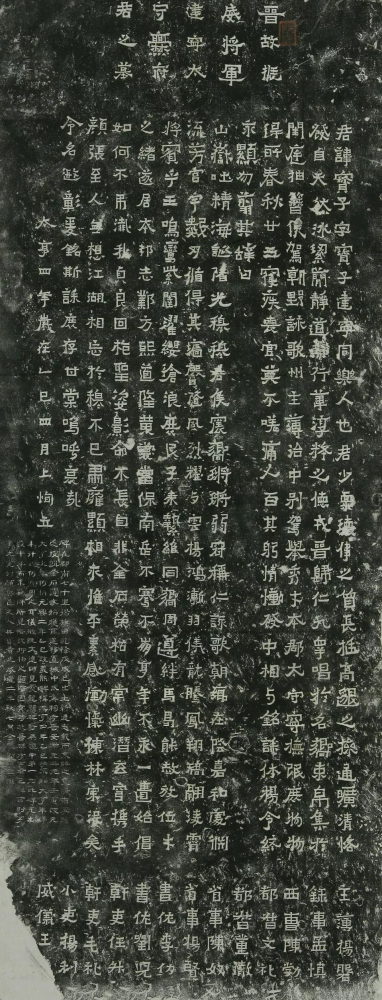 晉故振
威將軍
建寧太
守爨府
君之墓
君諱寶子字寶子建寧同樂人也君少稟瓌偉之質長挺高邈之操通曠清恪
發自天然冰絜簡靜道兼行葦淳粹之德戎晉歸仁九皋唱於名嚮束帛集於
閨庭抽簪俟駕朝野詠歌州主簿治中別駕舉秀才本郡太守寧撫氓庶物物
得所春秋廿五寢疾喪官莫不嗟痛人百其躬情慟發中相與銘誄休揚令終
永顯勿翦其辭曰
山嶽吐精海誕陼光穆穆君侯震響鏘鏘弱冠稱仁詠歌朝鄉在陰嘉和處淵
流芳宮宇數刃循得其墻馨隨風烈耀與雲揚鴻漸羽儀龍騰鳳翔矯翮凌霄
將賓乎王鳴鸞紫闥濯纓滄浪庶民子來縶維同嚮周遵絆馬曷能赦放位才
之緒遂居本邦志鄴方熙道隆黃裳當保南岳不騫不崩享年不永一匱始倡
如何不弔殲我貞良回抱聖姿影命不長自非金石榮枯有常幽潛玄穹攜手
顏張至人無想江湖相忘於穆不已肅雍顯相永惟平素感慟忾慷林宗沒矣
令名遐彰爰銘斯誄庶存甘棠嗚呼哀哉
太亨四年歲在乙巳四月上恂立
主簿楊磐
錄事孟慎
西曹陳勃
都督文禮
都督董徹
省事陳奴
省事楊賢
書佐李仂
書佐劉兒
幹吏任升
幹吏毛禮
小吏楊利
威儀王